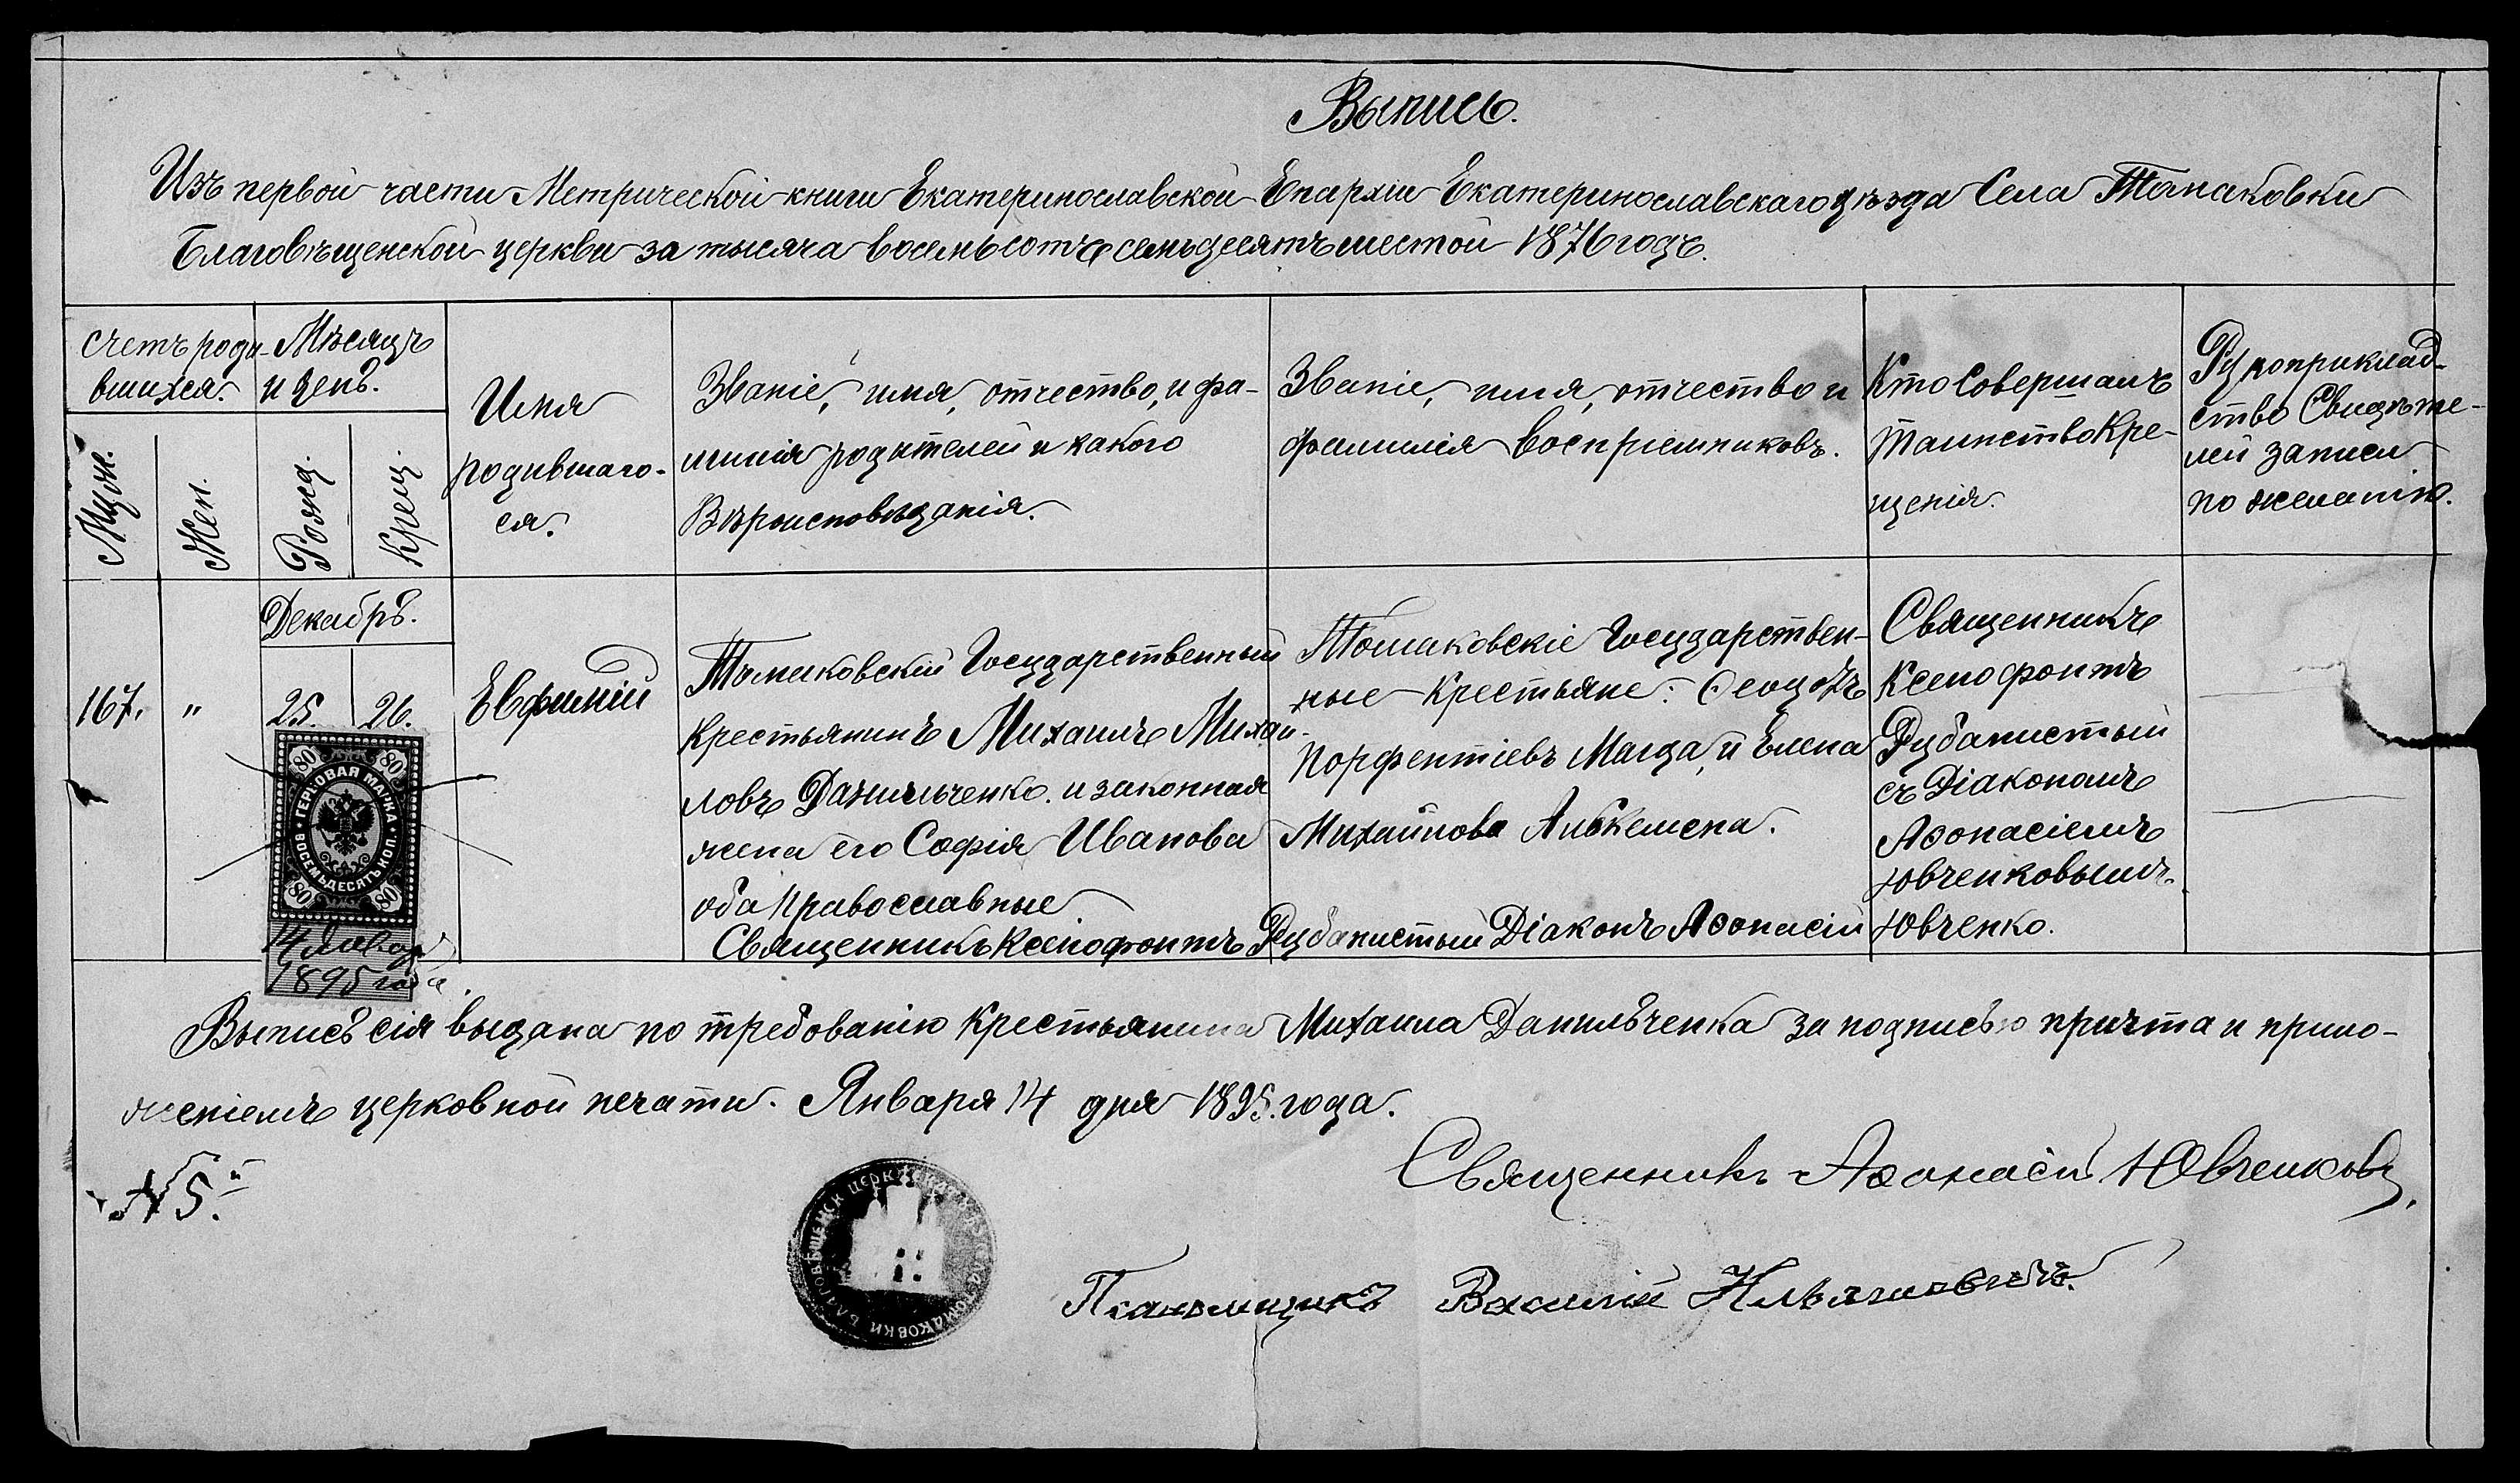 Выпись.
Изъ первой части Метрической книги Екатеринославской Епархіи Екатеринославскаго уѣзда Села Томаковки
Благовѣщенской церкви за тысяча восемьсотъ семьдесятъ шестой 1876 годъ.
Счетъ роди-
вшихся.
Муж.
Жен.
Мѣсяцъ
и день.
Рожд.
Крещ.
Имя
родившаго-
ся.
Званіе, имя, отчество, и фа-
милія родителей и какого
Вѣроисповѣданія.
Званіе, имя, отчество и
фамилія воспріемниковъ.
Кто Совершалъ
Таинство Кре-
щенія.
Рукоприклад-
ство Свидѣте-
лей записи
по желанію.
Декабрь.
167.
"
25.
26.
Евфимій
Томаковскій Государственный
крестьянинъ Михаилъ Михай-
ловъ Данильченко. и законная
жена его Софія Иванова
оба православные.
Томаковскіе Государствен-
ные крестьяне: Ѳеодотъ
Порфентіевъ Магда, и Елена
Михайлова
Священникъ
Ксенофонтъ
Рубанистый
съ Діакономъ
Аѳонасіемъ
Ювченковымъ.
Священникъ Ксенофонтъ Рубанистый Діаконъ Аѳонасій Ювченко.
80 80
ГЕРБОВАЯ МАРКА
ВОСЕМЬДЕСЯТЬ КОП.
80 80
14 Января
1895 года.
Выпись сія выдана по требованію крестьянина Михаила Данильченка за подписью причта и прило-
женіемъ церковной печати. Января 14 дня 1895. года.
N 5.й
Священникъ Аѳонасій Ювченковъ.
БЛАГОВѢЩЕНСК ЦЕРКВИ ТОМАКОВКИ
Псаломщикъ Василій